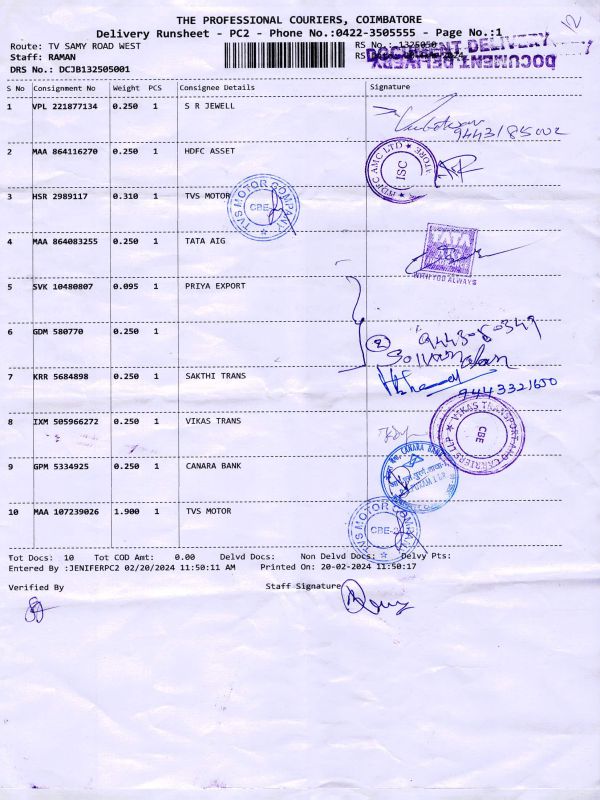 THE PROFESSIONAL COURIERS, COIMBATORE
Delivery Runsheet - PC2 - Phone No.:0422-3505555 - Page No.:1
12
Route: TV SAMY ROAD WEST
RS No.: 1325050
DOCUMENT DELIVERY
Staff: RAMAN
RS
DOCUMENT DELIVERY
DRS No.: DCJB132505001
S No Consignment No Weight PCS Consignee Details Signature
1 VPL 221877134 0.250 1 S R JEWELL
9443185002
2 MAA 864116270 0.250 1 HDFC ASSET
HDFC AMC LTD ★ STORE ★
ISC
3 HSR 2989117 0.310 1 TVS MOTOR
TVS MOTOR COMPANY ★
CBE-
4 MAA 864083255 0.250 1 TATA AIG
TATA
WITH YOU ALWAYS
5 SVK 10480807 0.095 1 PRIYA EXPORT
6 GDM 580770 0.250 1
7 KRR 5684898 0.250 1 SAKTHI TRANS
9443321650
8 IXM 505966272 0.250 1 VIKAS TRANS
★ VIKAS TRANSPORT AND CARRIERS LLP
CBE
9 GPM 5334925 0.250 1 CANARA BANK
CANARA BANK
10 MAA 107239026 1.900 1 TVS MOTOR
TVS MOTOR COMPANY ★
CBE-2
Tot Docs: 10 Tot COD Amt: 0.00 Delvd Docs: Non Delvd Docs: Delvy Pts:
Entered By :JENIFERPC2 02/20/2024 11:50:11 AM Printed On: 20-02-2024 11:50:17
Verified By Staff Signature